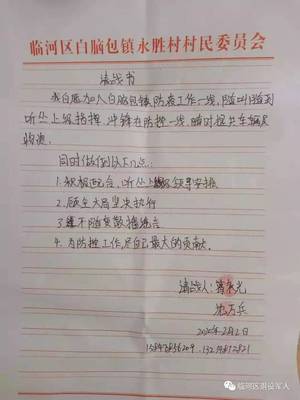 临河区白脑包镇永胜村村民委员会
请战书
我自愿加入白脑包镇防疫工作一线,随叫随到
听从上级指挥,冲锋在防控一线,随时提供车辆及
物资
同时做到以下几点:
1.积极配合,听从上级领导安排
2.顾全大局坚决执行
3.不随意散播谣言
4.为防控工作,尽自己最大的贡献。
请战人:
2020年2月2日
临河区退役军人